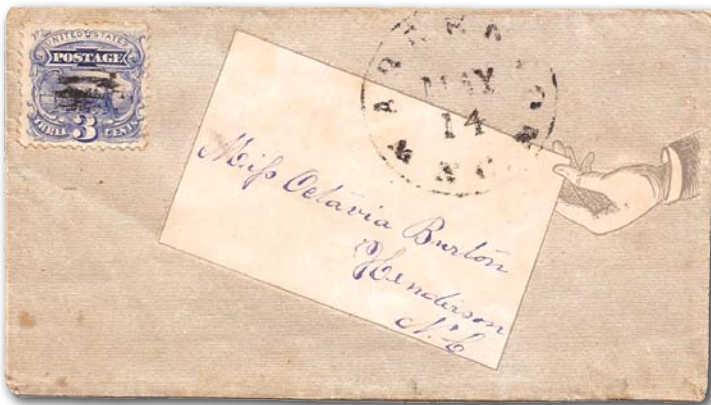 UNITED STATES
POSTAGE
THREE 3 CENTS
MAY
14
N.C.
Miss Octavia Burton
Henderson
N.C